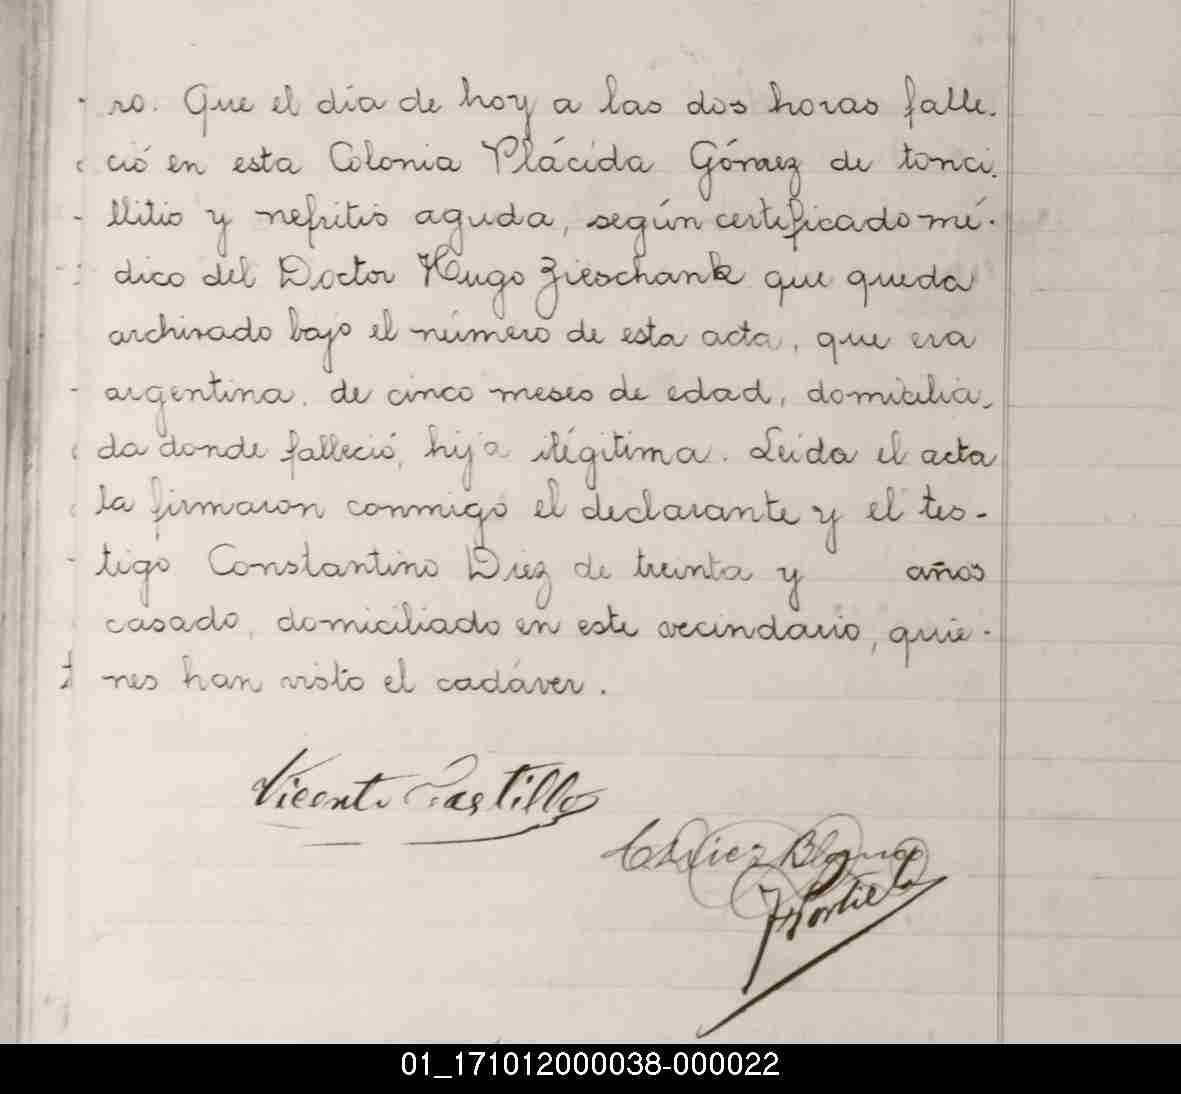 ro. Que el día de hoy a las dos horas falle-
ció en esta Colonia Plácida Gómez de tonci-
llitis y nefritis aguda, según certificado mé-
dico del Doctor Hugo Zieschank que queda
archivado bajo el número de esta acta, que era
argentina, de cinco meses de edad, domicilia-
da donde falleció, hija ilégitima. Leida el acta
la firmaron conmigo el declarante y el tes-
tigo Constantino Diez de treinta y años
casado, domiciliado en este vecindario, quie-
nes han visto el cadáver.
Vicente Castillo
Diez Blanco
01_171012000038-000022